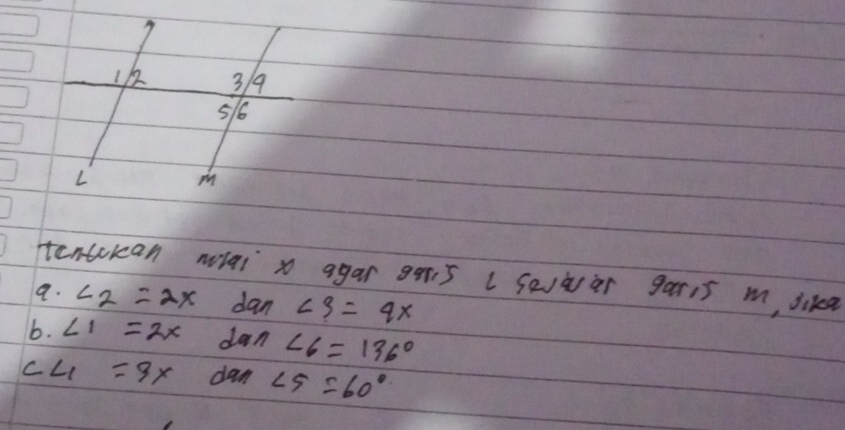 1 2 3 4
5 6
L M
tentukan nilai x agar garis l sejajar garis m, jika
a. ∠2 = 2x dan ∠3 = 4x
b. ∠1 = 2x dan ∠6 = 136°
c ∠1 = 3x dan ∠5 = 60°